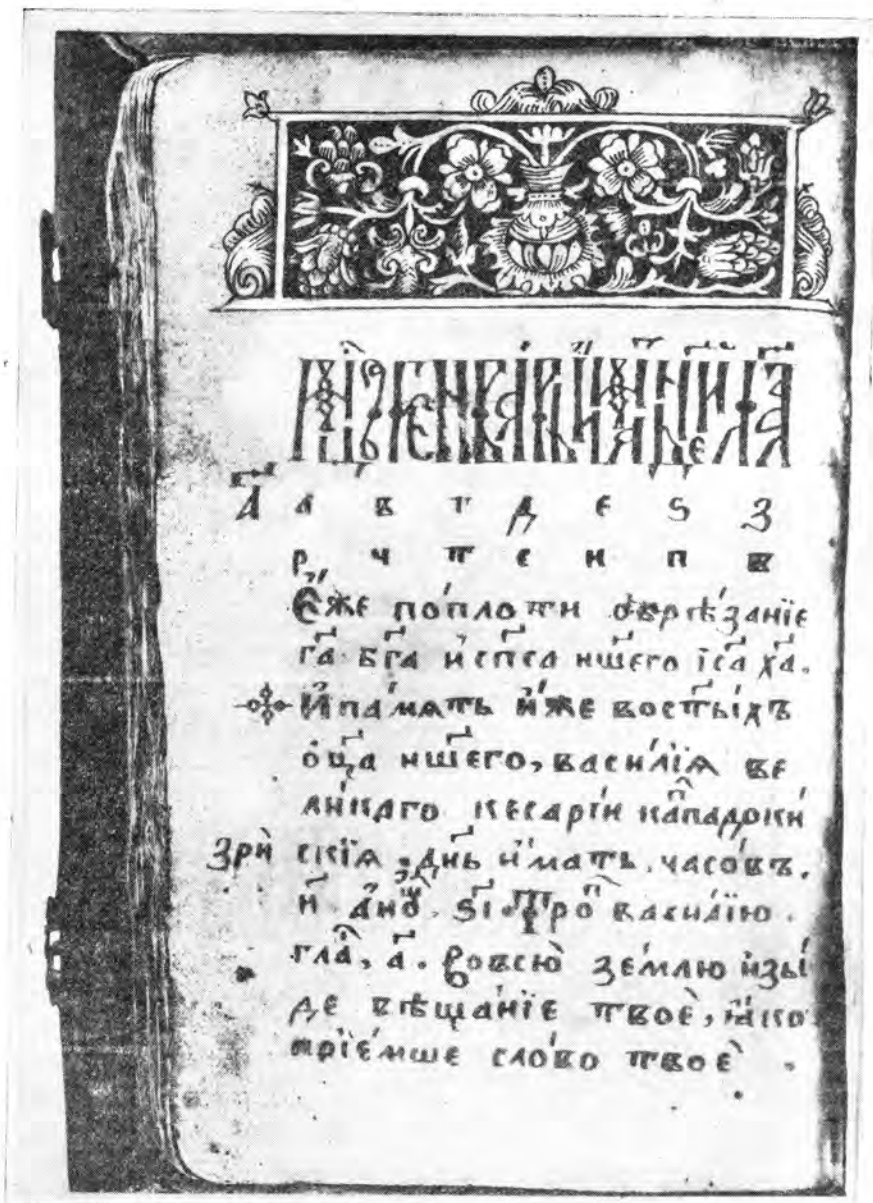 а҃ а в г д е ѕ з
р ч т с н п в
Е҆́же по́плоти ѻ҆брѣ́занїе
га҃ бг҃а и҆ сп҃са нш҃его і҆са҃ ха҃.
И҆па́мѧть и҆́же восты҃хъ
ѻ҆ц҃а нш҃его, васи́лїѧ ве
ли́каго кесарі́и ка҆падоки́
Зрѝ скїѧ. дн҃ь и҆́мать. часо́въ.
и҃ а҆но́щ. ѕі҃. Тро́п васи́лїю.
гла́, а҃. Вовсю̀ зе́млю и҆зы́
де вѣща́нїе твоѐ, ꙗ҆́ко
прїе́мше сло́во твоѐ .